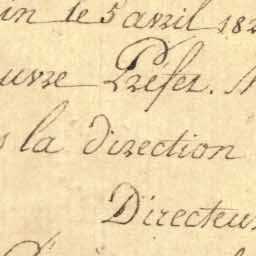 in le 5 avril 182
uvre Préfet. N
s la direction
Directeur